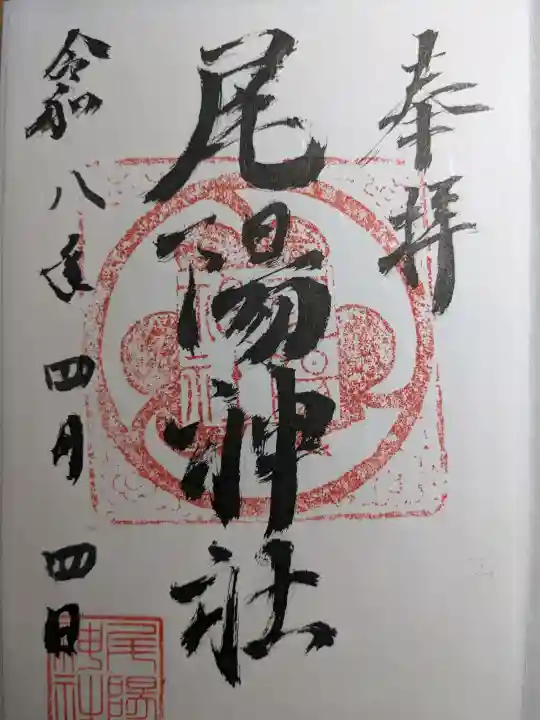 奉拝
尾陽神社
令和八年 四月 四日
尾陽神社